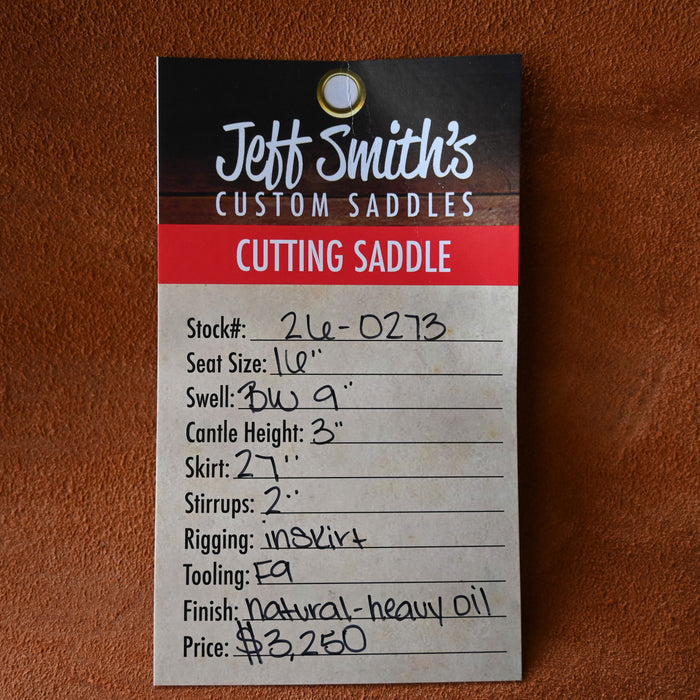 Jeff Smith's
CUSTOM SADDLES
CUTTING SADDLE
Stock#: 26-0273
Seat Size: 16"
Swell: BW 9"
Cantle Height: 3"
Skirt: 27"
Stirrups: 2"
Rigging: inskirt
Tooling: F9
Finish: natural-heavy oil
Price: $3,250